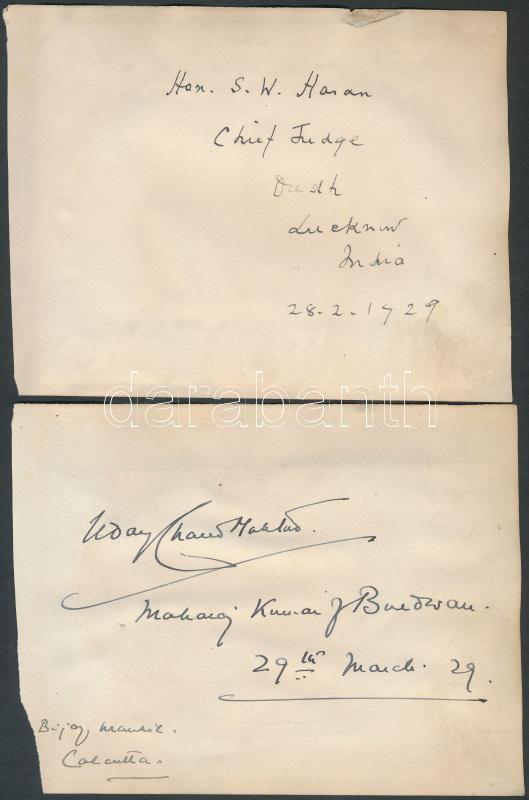 Hon. S. W. Hasan
Chief Judge
Oudh
Lucknow
India
28-2-1929
darabanth
Uday Chand Mahtab.
Maharaj Kumar of Burdwan.
29th March. 29.
Bijay Manzil.
Calcutta.